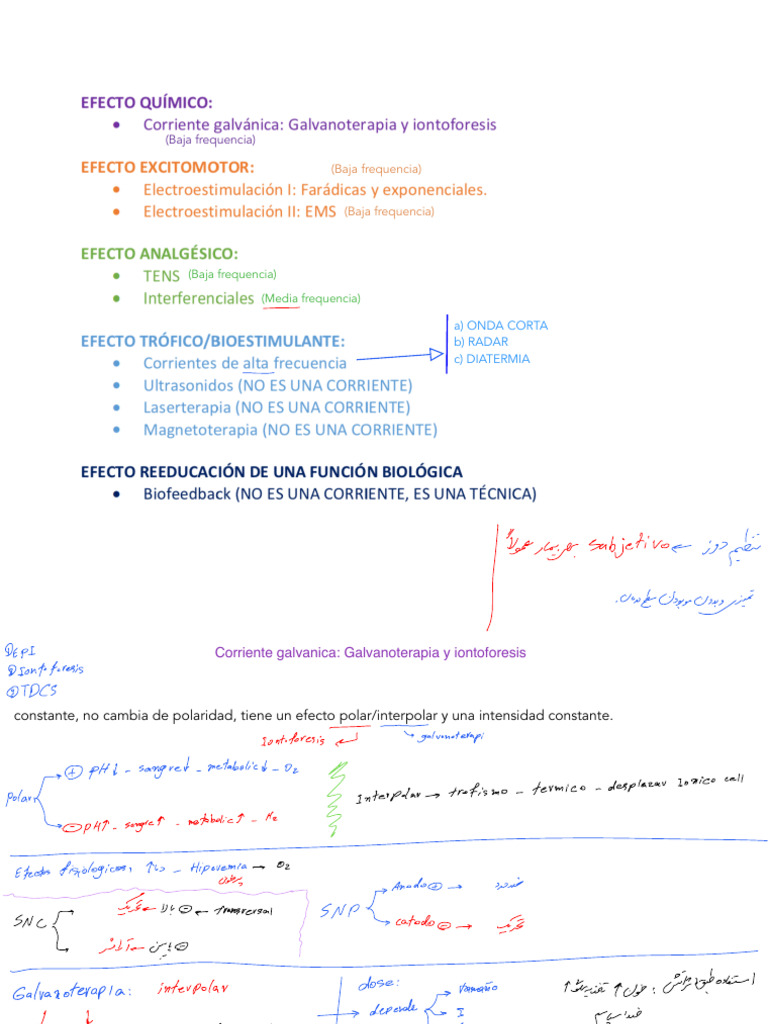 EFECTO QUÍMICO:
• Corriente galvánica: Galvanoterapia y iontoforesis
(Baja frequencia)
EFECTO EXCITOMOTOR: (Baja frequencia)
• Electroestimulación I: Farádicas y exponenciales.
• Electroestimulación II: EMS (Baja frequencia)
EFECTO ANALGÉSICO:
• TENS (Baja frequencia)
• Interferenciales (Media frequencia)
EFECTO TRÓFICO/BIOESTIMULANTE:
• Corrientes de alta frecuencia
a) ONDA CORTA
b) RADAR
c) DIATERMIA
• Ultrasonidos (NO ES UNA CORRIENTE)
• Laserterapia (NO ES UNA CORRIENTE)
• Magnetoterapia (NO ES UNA CORRIENTE)
EFECTO REEDUCACIÓN DE UNA FUNCIÓN BIOLÓGICA
• Biofeedback (NO ES UNA CORRIENTE, ES UNA TÉCNICA)
تنظیم دوز ← subjetivo بهر بیمار معمولاً
تمیزی و بدون مو بودن سطح بدن.
① EPI
② Iontoforesis
③ TDCS
Corriente galvanica: Galvanoterapia y iontoforesis
constante, no cambia de polaridad, tiene un efecto polar/interpolar y una intensidad constante.
Iontoforesis
galvanoterapi
Polar
⊕ pH↓ - sangre↓ - metabolic↓ - O2
⊖ pH↑ - sangre↑ - metabolic↑ - H2
Interpolar → trofismo - termico - desplazar Ionico cell
Efectos fisiologicos: دما↑ - Hiperemia → O2
SNC
تحریک ← بالا ⊖ ← transversal
پایین ⊖
SNP
Anado ⊕ →
catodo ⊖ → تحریک
Galvanoterapia: interpolar
dose:
depende
tamaño
I
استفاده طبق